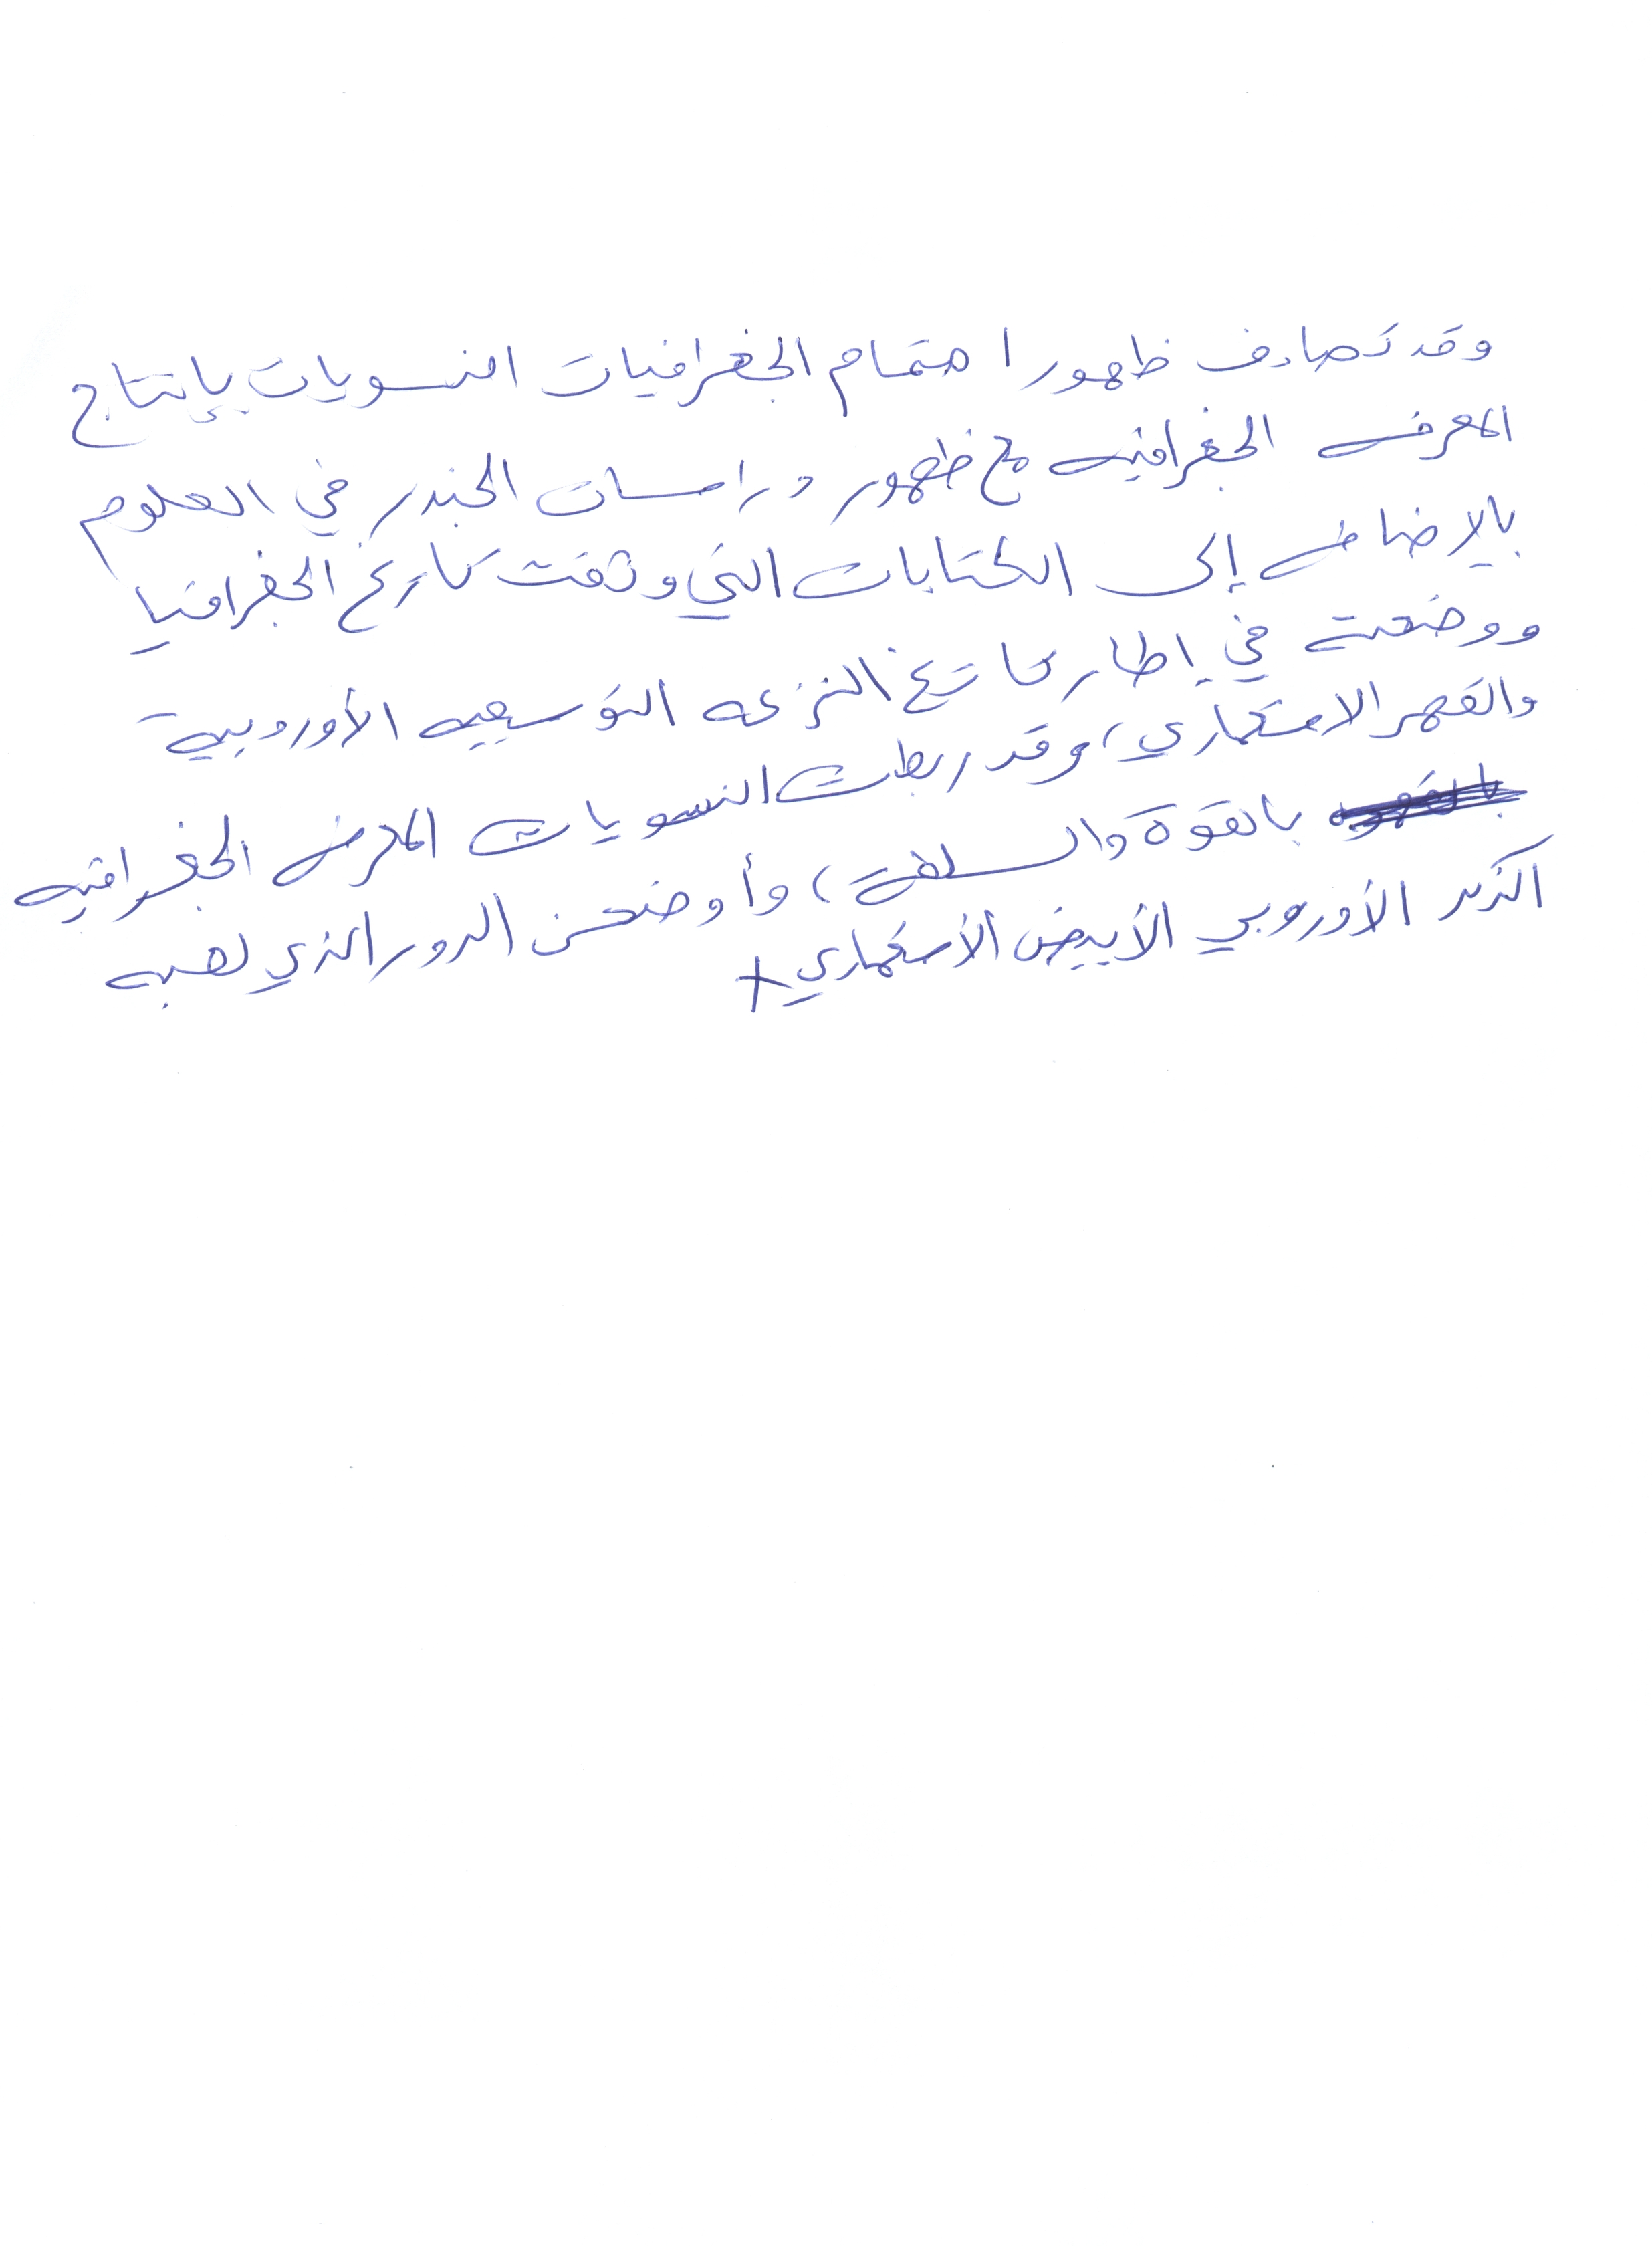 وقد تصادف ظهور اهتمام الجغرافيات النسويات بإنتاج
المعرفة الجغرافية مع ظهور دراسات الجندر في العلوم
بالإضافة إلى الكتابات التي وثقت تاريخ الجغرافيا
ووضعته في إطار تاريخ النزعة التوسعية الأوروبية
والقهر الاستعماري، وقد ربطت النسويات المعرفة الجغرافية
بالقوة والسلطة، وأوضحن الدور الذي لعبه
الذكر الأوروبي الأبيض الأستعماري +